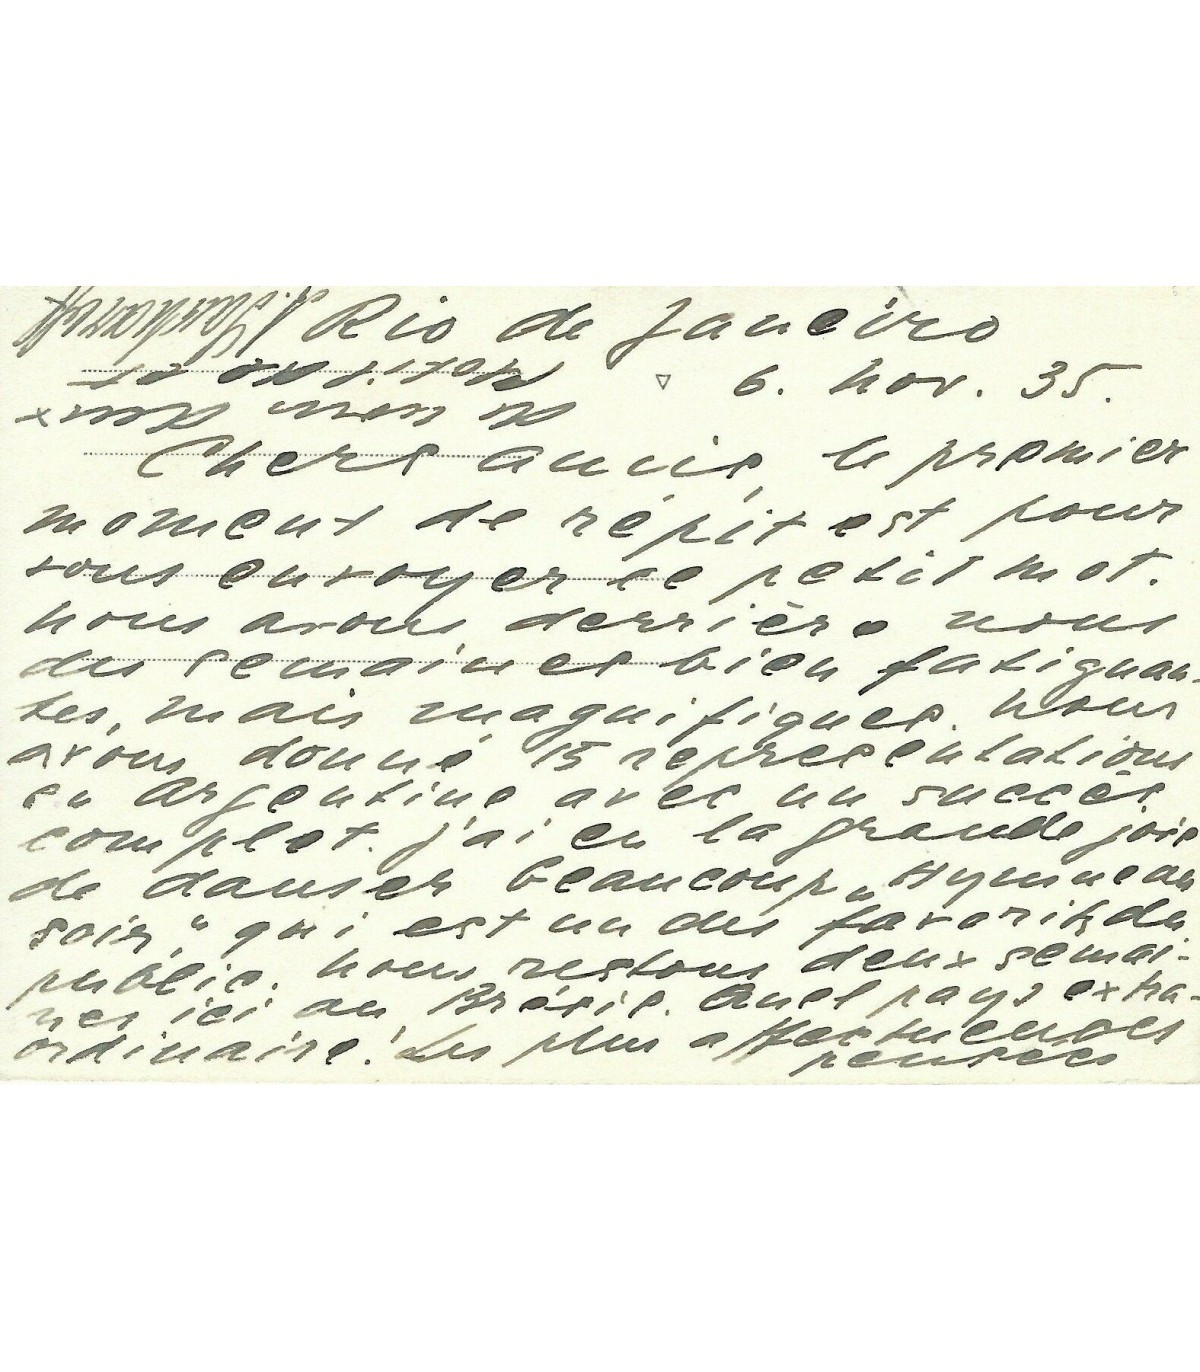 Rio de Janeiro
6. Nov. 35.
Chers amis, le premier
moment de répit est pour
vous envoyer ce petit mot.
Nous avons derrière nous
des semaines bien fatiguan-
tes, mais magnifiques. Nous
avons donné 15 représentations
en Argentine avec un succès
complet. J'ai eu la grande joie
de danser beaucoup „Hymne au
soir," qui est un des favorits du
public. Nous restons deux semai-
nes ici au Brésil. Quel pays extra-
ordinaire! Les plus affectueuses
pensées
de nous deux
A. Sakharoff